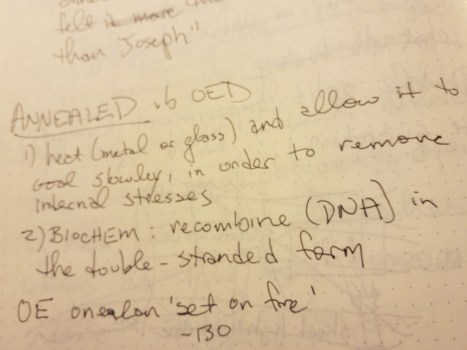 felt is more
than Joseph"
ANNEALED vb OED
1) heat (metal or glass) and allow it to
cool slowley, in order to remove
internal stresses
2) BIOCHEM: recombine (DNA) in
the double-stranded form
OE onealan 'set on fire'
-130